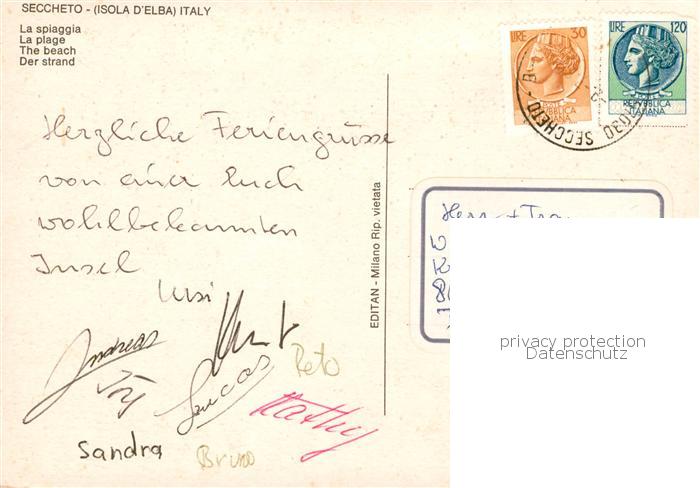 SECCHETO - (ISOLA D'ELBA) ITALY
La spiaggia
La plage
The beach
Der strand
LIRE 30
POSTE REPVBBLICA ITALIANA
LIRE 120
REPVBBLICA ITALIANA
SECCHETO
Herzliche Feriengrüsse
von einer Euch
wohlbekannten
Insel
Ursi
Kurt
Andreas
Lucas
Reto
Kathy
Sandra
Bruno
EDITAN - Milano Rip. vietata
Herr +
privacy protection
Datenschutz